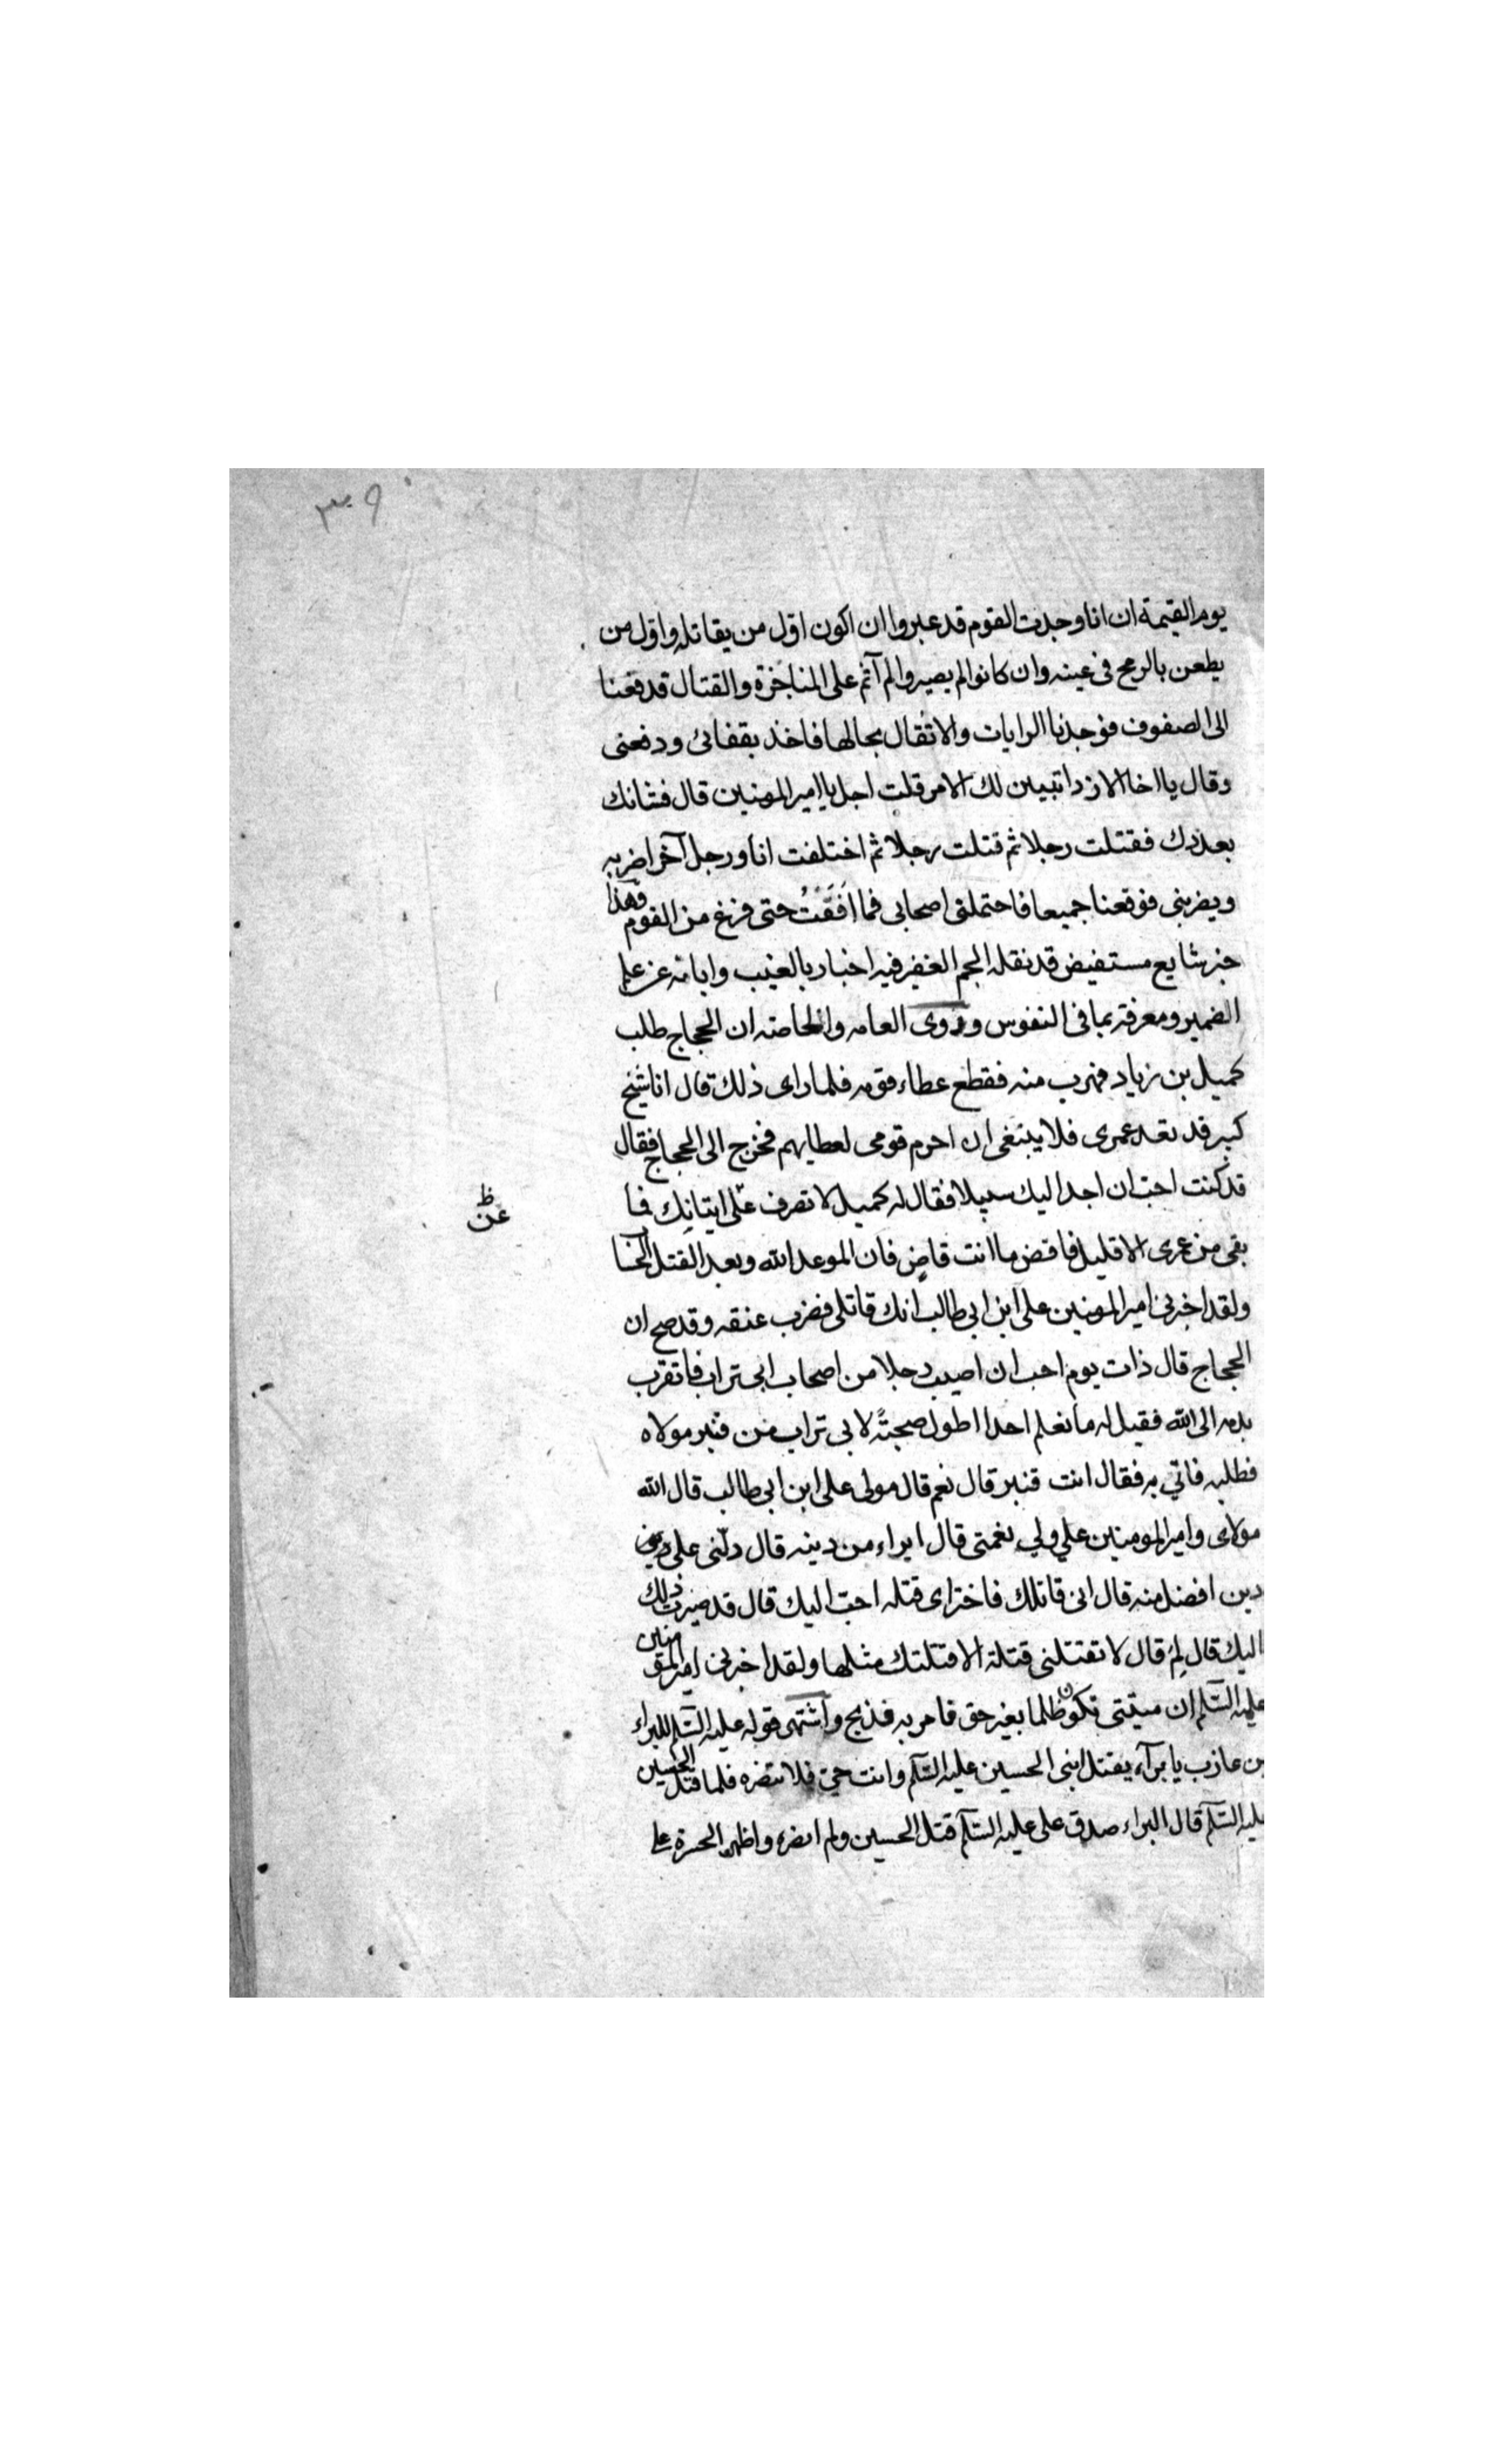 ٣٩
يوم القيمة ان انا وجدت القوم قد عبروا ان اكون اوّل من يقاتله واوّل من
يطعن بالرمح فى عينه وان كانوا لم يعبروا لم آثم على المناجزة والقتال فدفعنا
الى الصفوف فوجدنا الرايات والاثقال بحالها فاخذ بقفائى ودفعنى
وقال يا اخا الازد اتبين لك الامر قلت اجل يا امير المومنين قال فشانك
بعدوك فقتلت رجلا ثم قتلت رجلا ثم اختلفت انا ورجل آخر اضربه
ويضربنى فوقعنا جميعا فاحتملنى اصحابى فما افَقَتُ حتى فرغ من القوم وهذا
خبر شايع مستفيض قد نقله الجم الغفير فيه اخبار بالغيب وابانة عن علم
الضمير ومعرفة بما فى النفوس وروى العامه والخاصه ان الحجاج طلب
كميل بن زياد فهرب منه فقطع عطاء قومه فلما راى ذلك قال انا شيخ
كبير قد نفد عمرى فلا ينبغى ان احرم قومى لعطايهم فخرج الى الحجاج فقال
قد كنت احبّ ان اجد اليك سبيلا فقال له كميل لا تصرف علّى ايتانك فما
عن ظ
بقى من عمرى الا قليل فاقض ما انت قاضٍ فان الموعد الله وبعد القتل الحسا
ولقد اخبرنى امير المومنين على ابن ابى طالب انك قاتلى فضرب عنقه وقد صح ان
الحجاج قال ذات يوم احب ان اصيب رجلا من اصحاب ابى تراب فاتقرب
بدمه الى الله فقيل له ما نعلم احدا اطول صحبتةً لابى تراب من قنبر مولاه
فطلبه فاتي به فقال انت قنبر قال نعم قال مولى على ابن ابى طالب قال الله
مولاى وامير المومنين علي ولي نعمتى قال ابراء من دينه قال دلّنى على
دين افضل منه قال انى قاتلك فاختر اى قتله احبّ اليك قال قد صيرت ذلك
اليك قال لِمَ قال لا تقتلنى قتلة الا قتلتك مثلها ولقد اخبرنى امير المؤمنين
عليه السّلم ان ميتتى تكون ظلما بغير حق فامر به فذبح واشتهر قوله عليه السّلم للبراء
بن عازب يا برآء يقتل ابنى الحسين عليه السّلم وانت حىّ فلا تنصره فلما قتل الحسين
عليه السّلم قال البراء صدق على عليه السّلم قتل الحسين ولم انصره واظهر الحسرة على